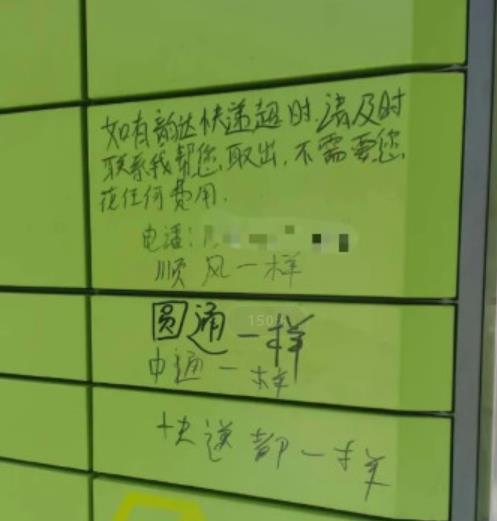 如有韵达快递超时,请及时
联系我帮您取出,不需要您
花任何费用.
电话:
顺风一样
圆通一样
申通一样
快递都一样